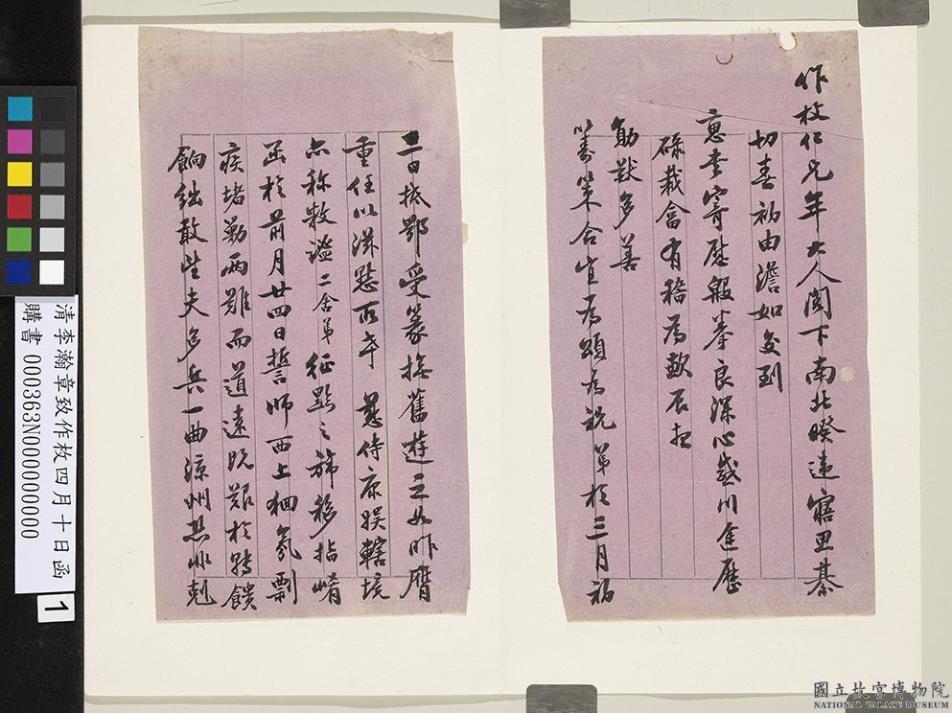 作枚仁兄年大人閣下南北暌違寤思綦
切春初由滬如廻到
惠書寄慰殷拳良深心感川途歷
碌裁會有稽為歉辰想
勛猷多善
籌策合宜為頌為祝弟於三月初
二日抵鄂受篆撫舊遊之如昨膺
重任以滋慙所幸 慈侍康娛轄境
亦稱敉謐二舍弟征黔之旆移指崤
函於前月廿四日誓師西上狪氛票
疾堵勦兩難而道遠既艱於轉饋
餉絀敢望夫多兵一曲涼州恐非剋
清李瀚章致作枚四月十日函
購書 000363N000000000
1
國立故宮博物院
NATIONAL PALACE MUSEUM